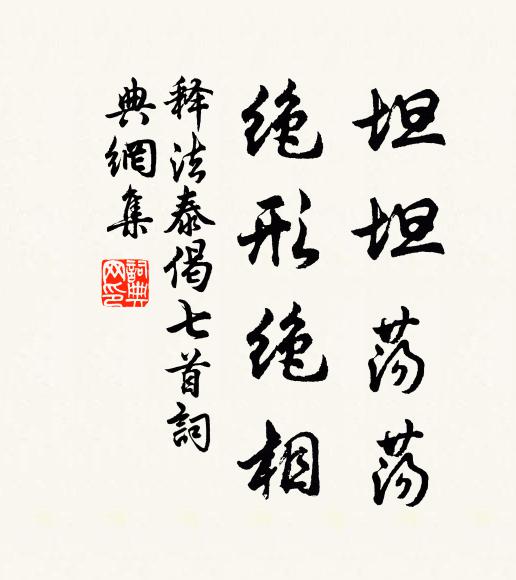 坦坦荡荡
绝形绝相
释法泰偈七首詞
典網集
詞典网印